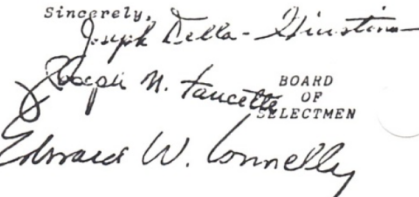 Sincerely,
Joseph Della-Giustina
Joseph N. Faucette
BOARD
OF
SELECTMEN
Edward W. Connelly